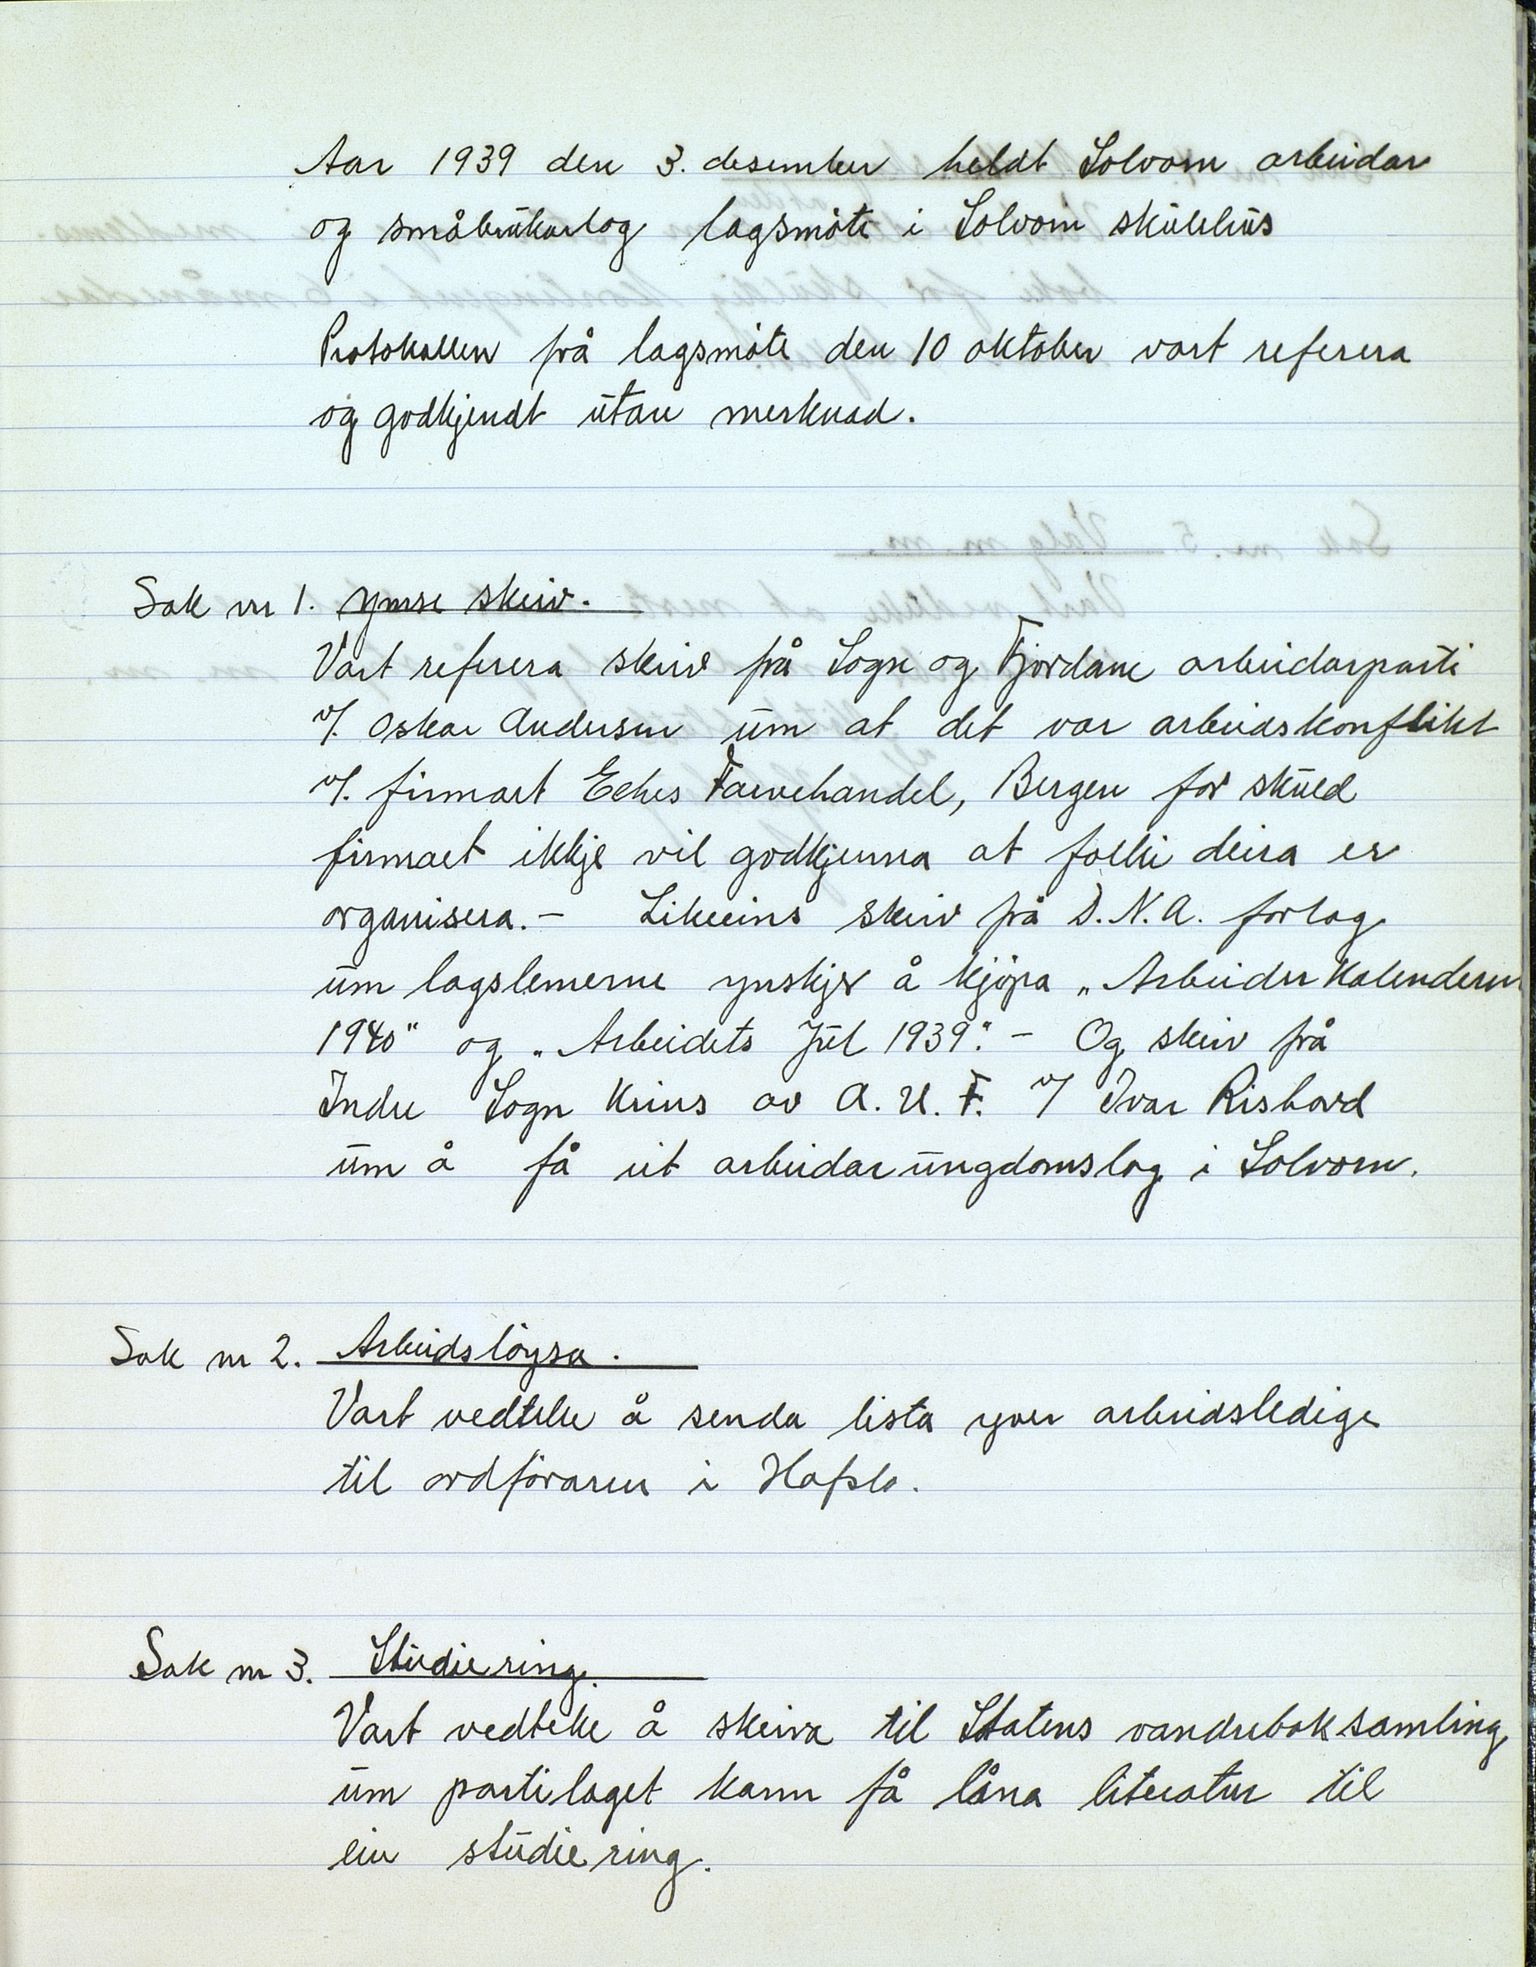 Aar 1939 den 3. desember heldt Solvorn arbeidar
og småbrukarlag lagsmöte i Solvorn skulehus
Protokollen frå lagsmöte den 10 oktober vart referera
og godkjendt utan merknad.
Sak nr 1. Ymse skriv.
Vart referera skriv frå Sogn og Fjordane arbeidarparti
v/. Oskar Andersen um at det var arbeidskonflikt
v/. firmaet Eckes Farvehandel, Bergen for skuld
firmaet ikkje vil godkjenna at folki deira er
organisera. – Likeeins skriv frå D.N.A. forlag
um lagslemerne ynskjer å kjöpa „Arbeider Kalenderen
1940" og „Arbeidets Jul 1939". – Og skriv frå
Indre Sogn Krins av A.U.F. v/ Ivar Risbord
um å få eit arbeidarungdomslag i Solvorn.
Sak nr 2. Arbeidslöysa.
Vart vedteke å senda lista yver arbeidsledige
til ordföraren i Hafslo.
Sak nr 3. Studiering.
Vart vedteke å skriva til Statens vandreboksamling
um partilaget kann få låna literatur til
ein studiering.